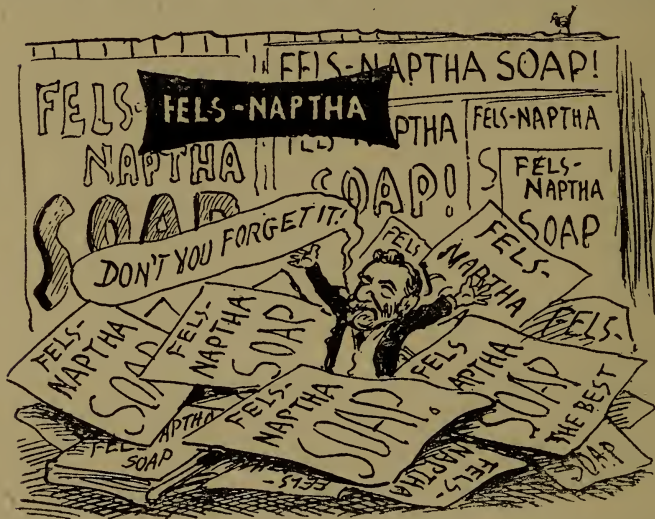 FELS-
NAPTHA
SOAP
FELS-NAPTHA
FELS-NAPTHA SOAP!
PTHA
SOAP!
FELS-NAPTHA
S
FELS-
NAPTHA
SOAP
DON'T YOU FORGET IT!
FELS
FELS-
NAPTHA
FELS-
FELS-
NAPTHA
SOAP
FELS-
NAPTHA
SOAP
FELS
APTHA
SOAP
THE BEST
FELS-
NAPTHA
SOAP.
APTHA
SOAP
FELS-
FELS-
NAPTHA
SOAP